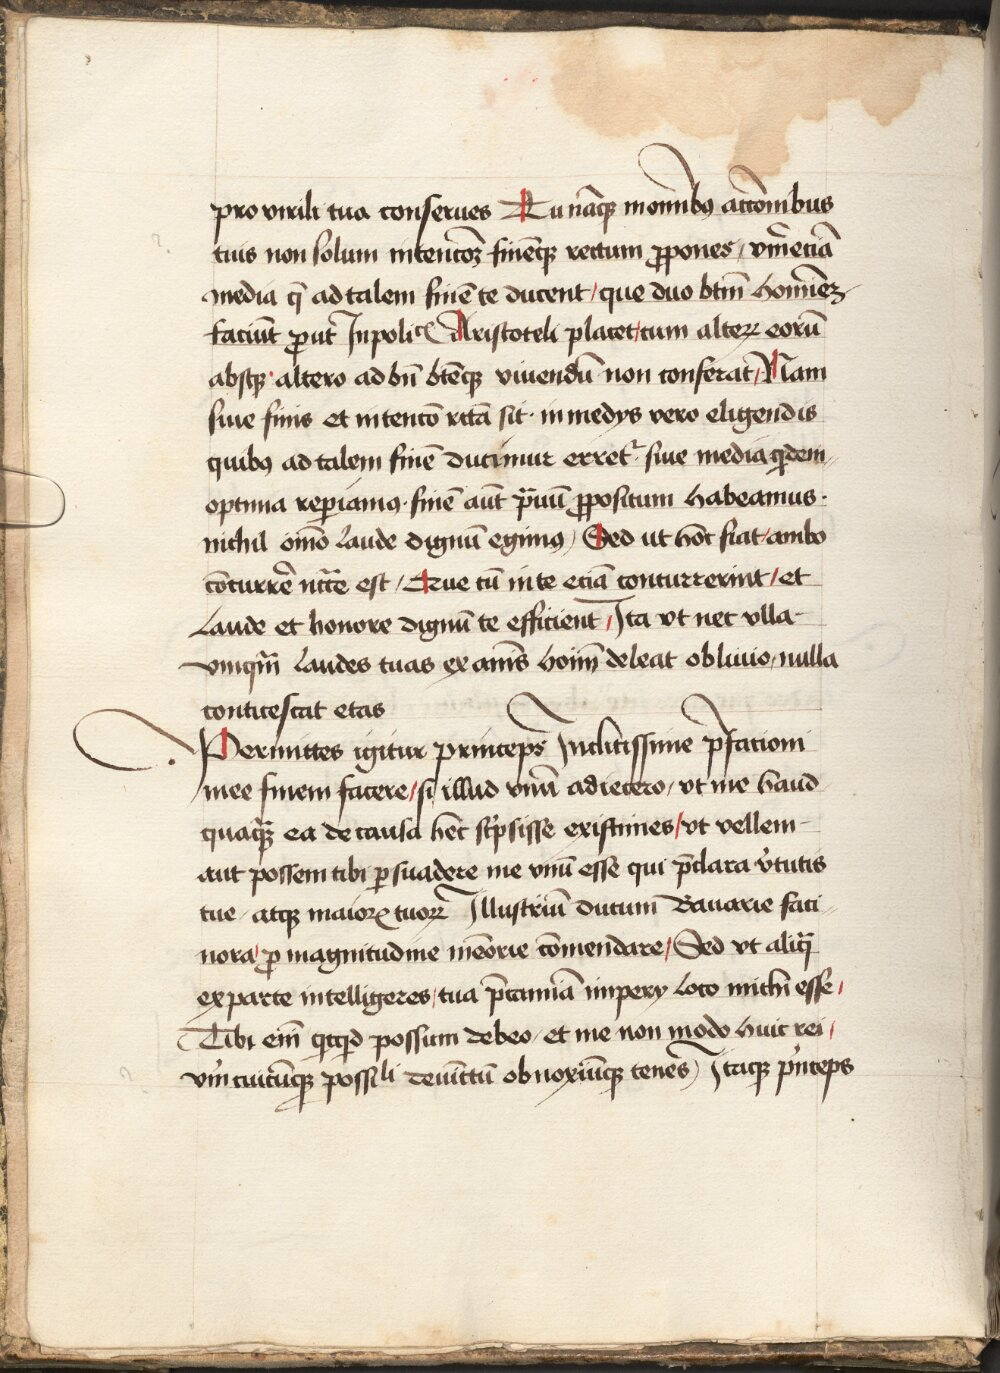 pro virili tua conserues Tu nāqꝫ in om̄ibꝰ actōnibus
tuis non solum intencōꝫ finēqꝫ rectum ꝓpones / vm̄eciā
media q̄ ad talem finē te ducent / que duo btm̄ hom̄iēꝫ
faciūt ꝓut In polic̄ Aristoteli placet / tum alterꝝ eorū
absqꝫ altero ad bn̄ btēqꝫ viuendū non conferat / Nam
siue finis et intencō rctā sit · in medys vero eligendis
quibꝰ ad talem finē ducimur erret᷑ · siue media qͥdem
optima reperiamꝰ · finē aūt prauū ꝓpositum habeamus ·
nichil om̄o laude dignū egimꝰ / Sed ut hoc fiat / ambo
cōcurrē ncc̄e est / Que cū in te eciā concurrerint / et
laude et honore dignū te efficient / Ita vt nec vlla
vnqm̄ laudes tuas ex anīs hoīm deleat obliuio / nulla
conticescat etas
Permittes igitur princeps Inclitissime p̄facioni
mee finem facere / si illud vnū adiecero / vt me haud
quaqꝫ ea de causa hec scͥpsisse existimes / vt vellem
aut possem tibi ꝑsuadere me vnū esse qui p̄clara v̓tutis
tue · atqꝫ maiorꝝ tuorꝝ Illustriū ducum Bauarie faci
nora / ꝓ magnitudine mēorie cōmendare / Sed vt aliq̄
ex parte intelligeres / tua p̄camīa impery loco michi esse /
Tibi em̄ qͥcqͥd possum debeo / et me non modo huic rei /
vm̄ cuicūqꝫ possili deuīctū obnoxiūqꝫ tenes / Itaqꝫ pͥnceps